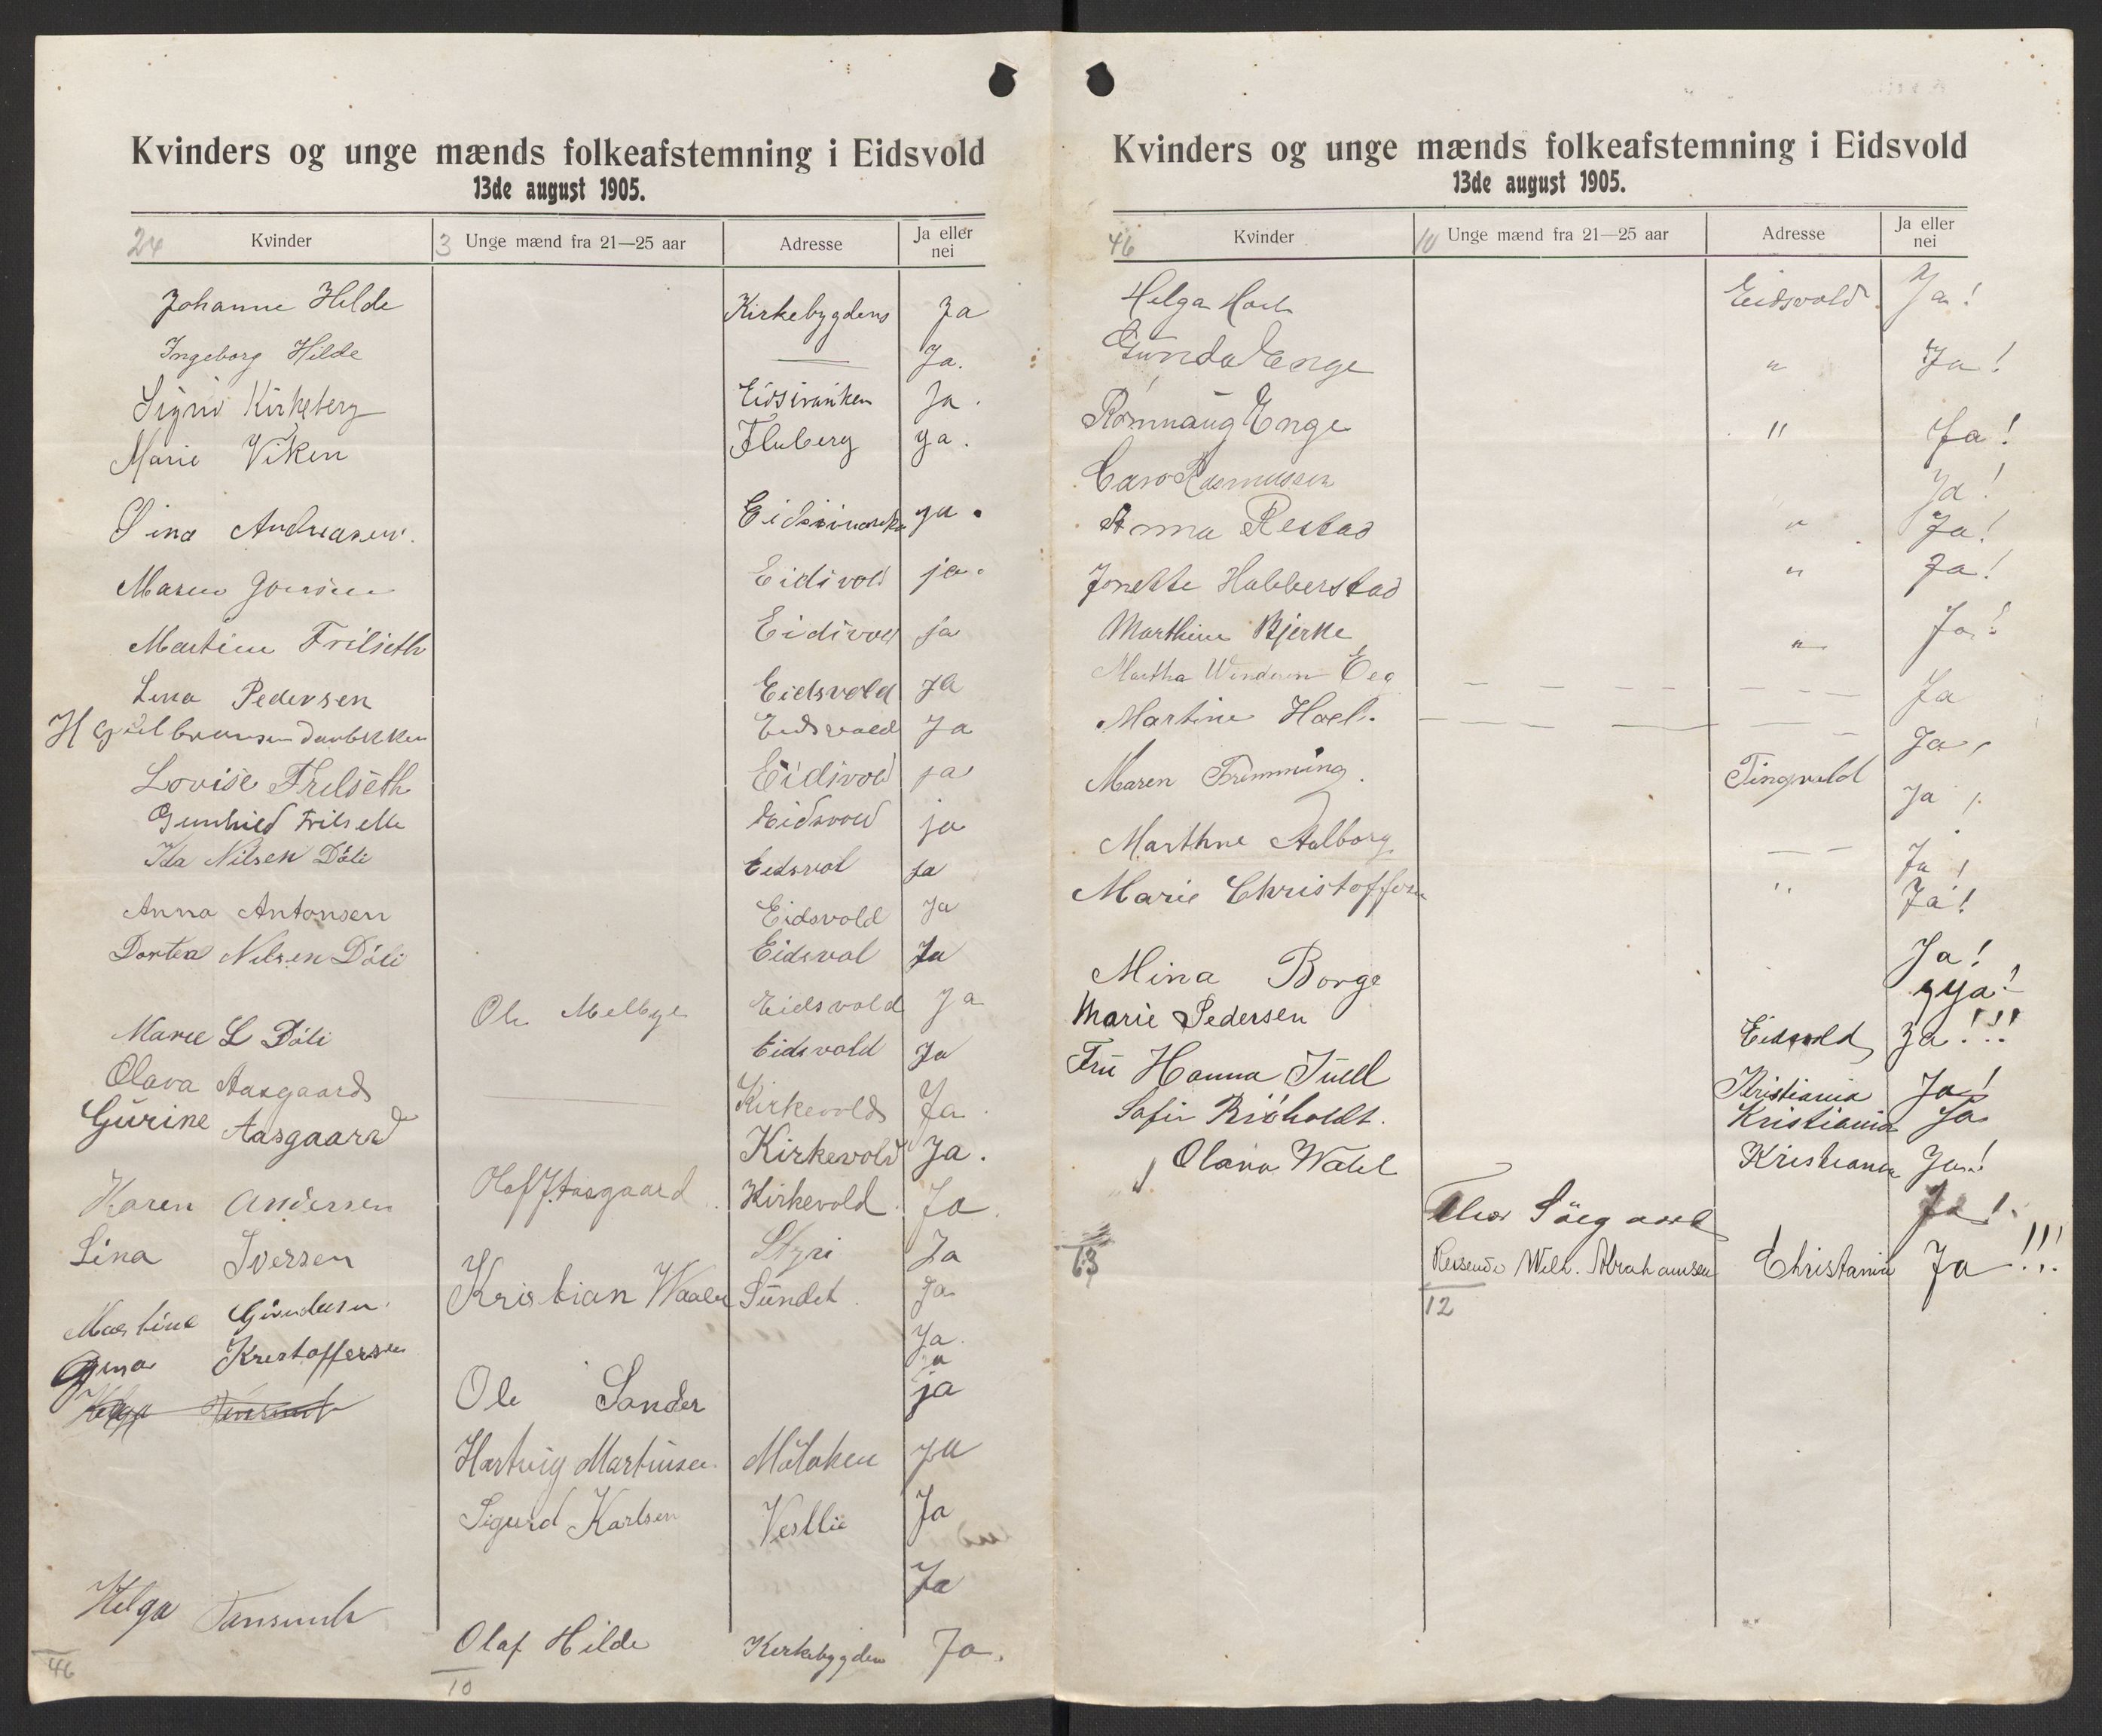 Kvinders og unge mænds folkeafstemning i Eidsvold
13de august 1905.
24 Kvinder 3 Unge mænd fra 21—25 aar Adresse Ja eller nei
Johanne Hilde Kirkebygdens Ja
Ingeborg Hilde — Ja.
Sigrid Kirkeberg Ja.
Marie Viken Fluberg ja.
Sina Andreasen. ja.
Maren Eidsvold ja.
Martine Frilseth Eidsvold ja
Lina Pedersen Eidsvold Ja
H Eidsvold Ja
Lovise Frilseth Eidsvold ja
Gunhild Frilseth Eidsvold ja
Ida Nilsen Döli Eidsvol Ja
Anna Antonsen Eidsvold Ja
Dortea Nilsen Döli Eidsvol Ja
Ole Melbye Eidsvold Ja
Marie L Döli Eidsvold Ja
Olava Aasgaard — Kirkevold Ja.
Gurine Aasgaard Kirkevold Ja.
Olaf J. Aasgaard Kirkevold Ja.
Karen Andersen Styri Ja
Lina Iversen Kristian Waaler Sundet Ja
Martine Gundersen Ja.
Gina Kristoffersen ja
Ole Sander ja
Helga
Hartvig Martinsen Ja
Sigurd Karlsen Vesllie Ja
Helga Ja
Olaf Hilde Kirkebygden Ja.
46 10
Kvinders og unge mænds folkeafstemning i Eidsvold
13de august 1905.
46 Kvinder 10 Unge mænd fra 21—25 aar Adresse Ja eller nei
Helga Hoel Eidsvold. Ja!
Gunda Enge " Ja!
Rømnaug Enge " Ja!
Caro Rasmussen " Ja!
Anna Restad " Ja!
Jonette Habberstad " Ja!
Marthine Bjerke " Ja!
Martha Ja
Martine Hoel. Ja,
Maren Fremming. Tingvold Ja!
Marthne Aalborg — — Ja!
Marie Christoffersen " Ja!
Mina Borge Ja!
Marie Pedersen Ja!
Fru Hanna Juell Eidsvold Ja!!!
Sofie Kristiania Ja!
Kristiania Ja
Olava Kristiania Ja!
Ja!
13 Reisende Wilh. Abrahamsen Christania Ja!!!
12